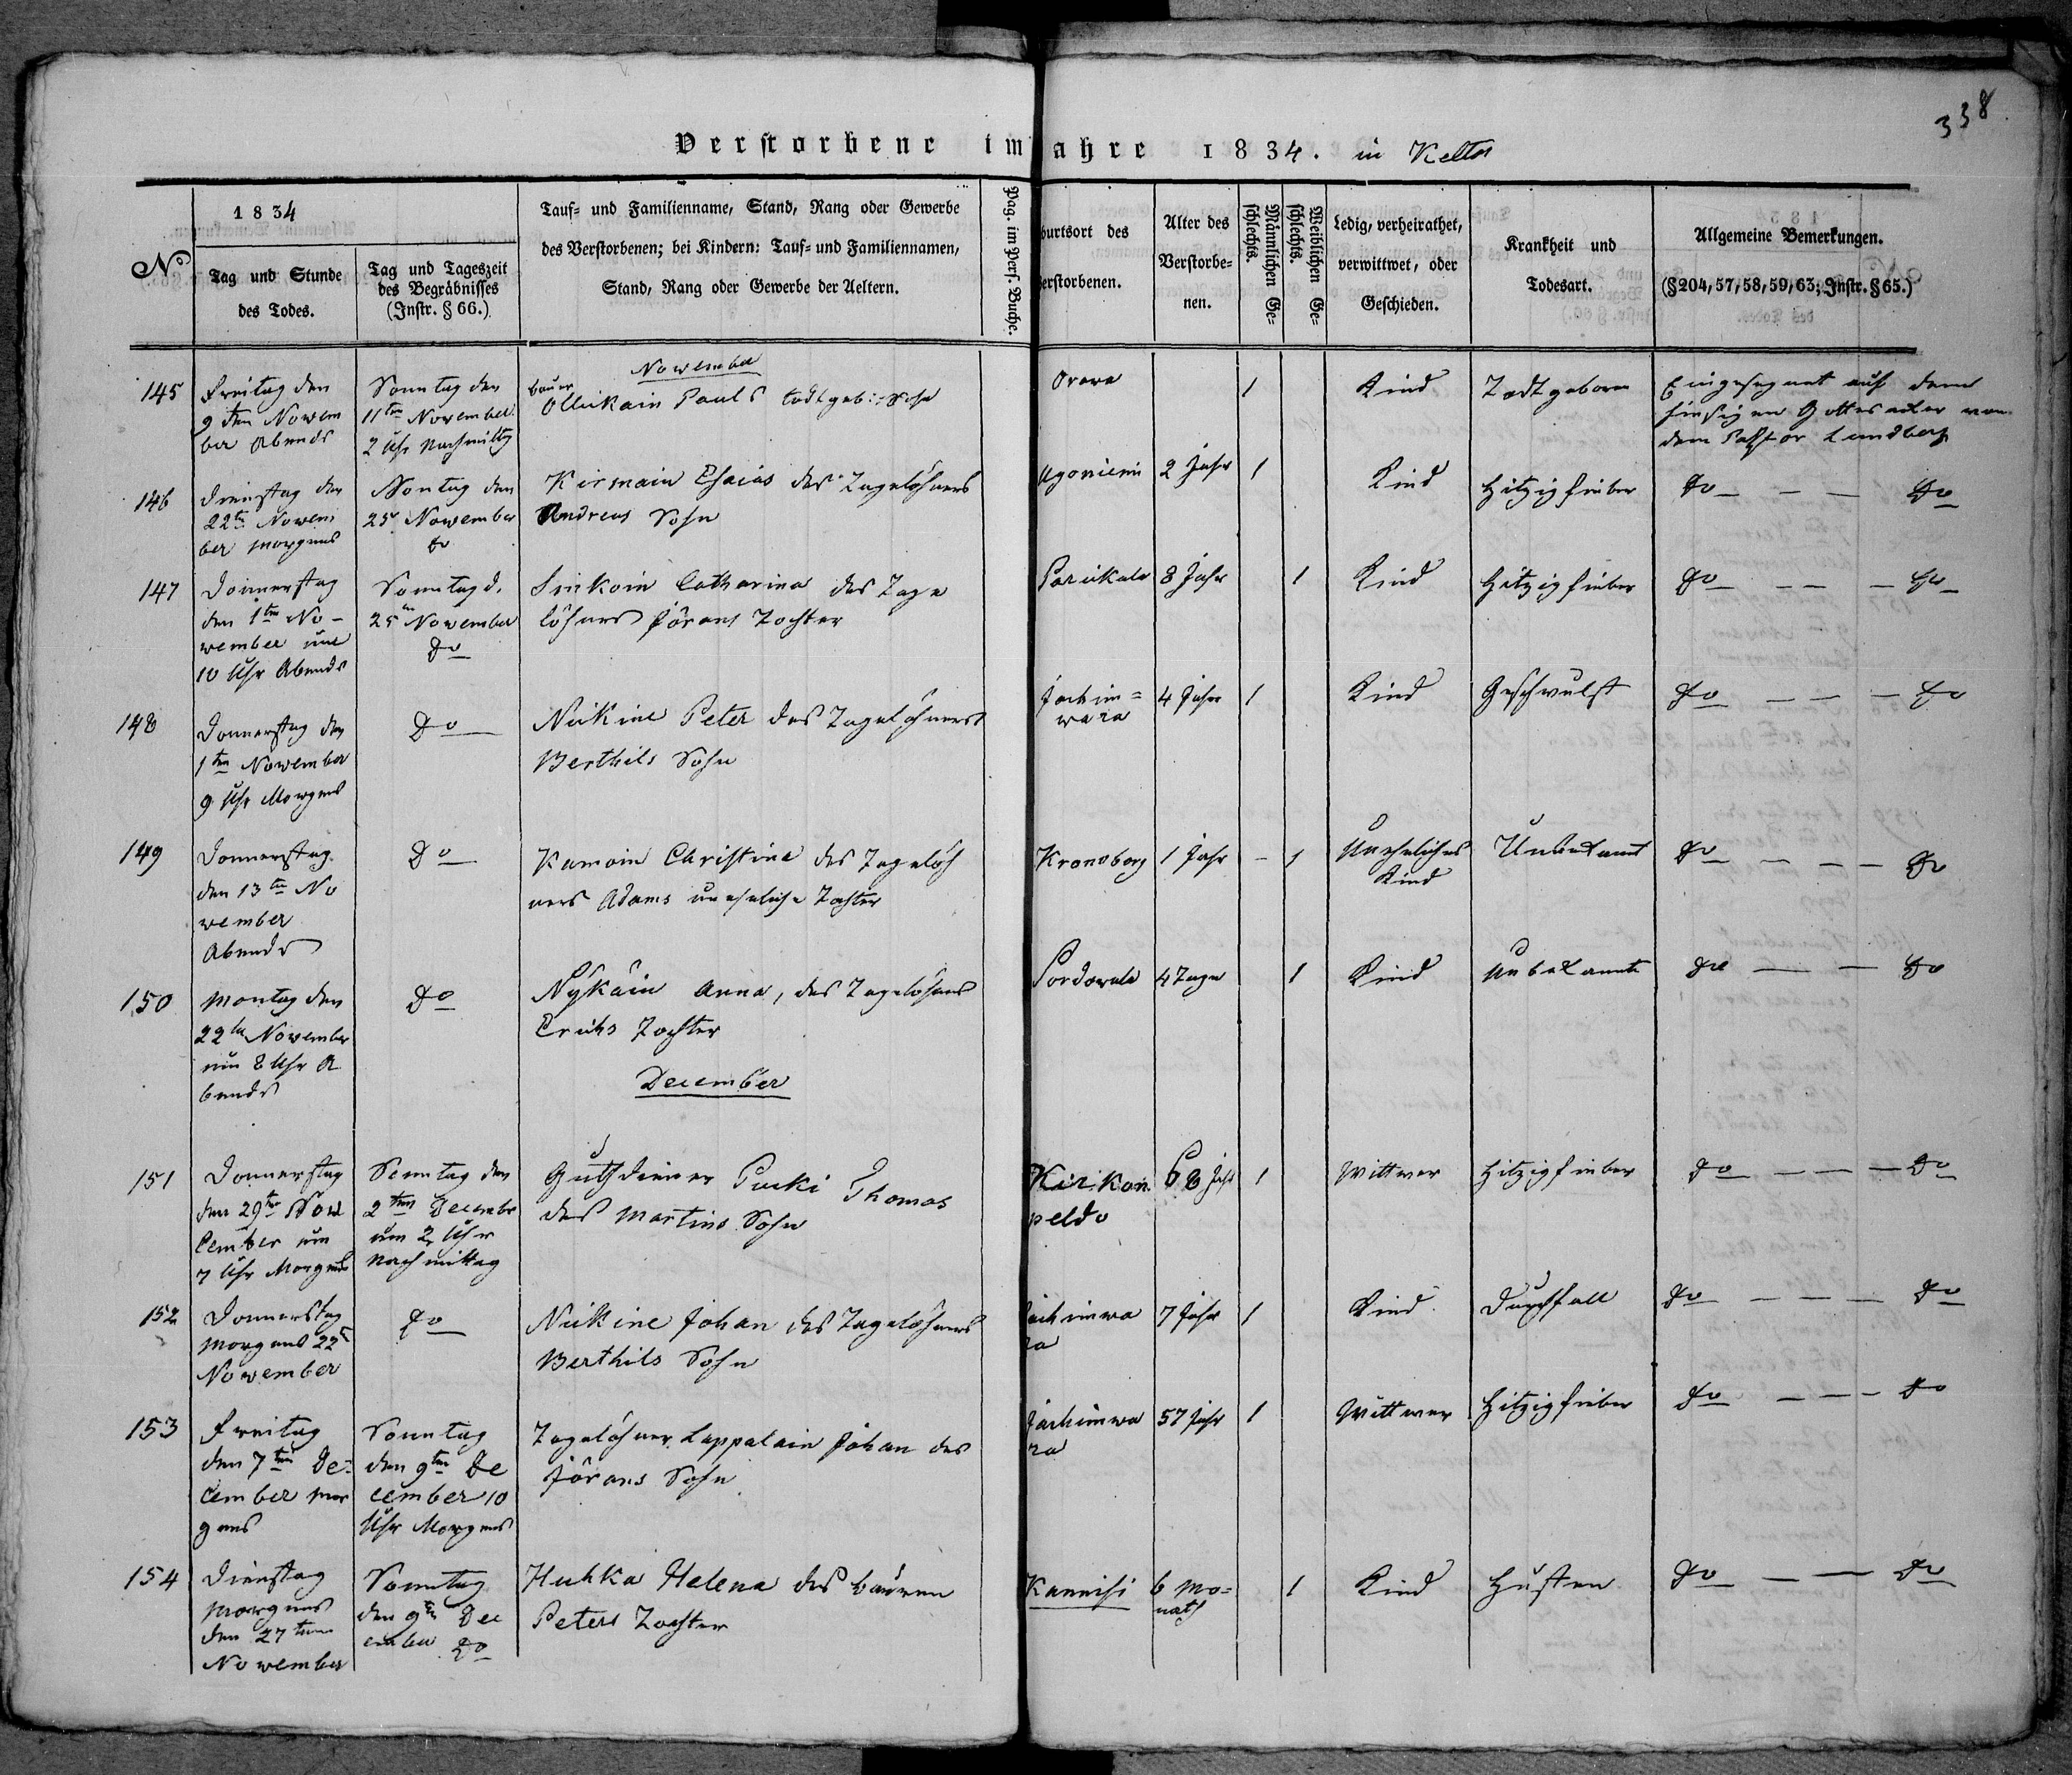 338
Verstorbene im Jahre 1834. in Keltos
No
1834
Tag und Stunde des Todes.
Tag und Tageszeit des Begräbnisses (Instr. § 66.)
Tauf- und Familienname, Stand, Rang oder Gewerbe
des Verstorbenen; bei Kindern: Tauf- und Familiennamen,
Stand, Rang oder Gewerbe der Aeltern.
Pag. im Pers. Buche.
burtsort des
erstorbenen.
Alter des Verstorbe-
nen.
Männlichen Ge-
schlechts.
Weiblichen Ge-
schlechts.
Ledig, verheirathet,
verwittwet, oder
Geschieden.
Krankheit und
Todesart.
Allgemeine Bemerkungen.
(§ 204, 57, 58, 59, 63; Instr. § 65.)
November
145
Freitag den
9ten Novem
ber Abends
Sonntag den
11ten November
2 Uhr Nachmittg
bauer
Ollikain Pauls todtgeb: Sohn
Orawa
1
Kind
Todtgeboren
Eingesegnet auf dem
hiesigen Gottesacker von
dem Pastor Lundberg
146
Dienstag den
22t Novem
ber morgens
Sontag den
25t November
Do
Kirmain Esaias des Tagelöhners
Andreas Sohn
2 Jahr
1
Kind
Hitzigfieber
Do - - - Do
147
Donnerstag
den 1ten No-
wember um
10 Uhr Abends
Sonntag d.
25ten November
Do
Sinkoin Catharina des Tage
löhners Jörans Tochter
8 Jahr
1
Kind
Hitzigfieber
Do - - - Do
148
Donnerstag den
1ten November
9 Uhr Morgens
Do
Neikine Peter des Tagelöhners
Berthils Sohn
Jachim=
wara
4 Jahr
1
Kind
Geschwulst
Do - - - Do
149
Donnerstag
den 13ten No
wember
Abends
Do
Kamoin Christina des Tagelöh
ners Adams uneheliche Tochter
Kronoborg
1 Jahr
- 1
Uneheliches
Kind
Unbekannt
Do - - - Do
150
Montag den
22ten November
um 8 Uhr A
bends
Do
Nykäin Anna, des Tagelöhners
Eriks Tochter
Sordowala
4 Tage
1
Kind
Unbekannt
Do - - Do
December
151
Donnerstag
den 29ten Nov
cember um
7 Uhr Morgens
Sonntag den
2ten December
um 2 Uhr
Nachmittag
Gutsdiener Pucki Thomas
des Martins Sohn
Kirkon
peldo
68 Jahr
1
Wittwer
Hitzigfieber
Do - - - Do
152
Donnerstag
Morgens 22t
November
Do
Neikine Johan des Tagelöhners
Berthils Sohn
Jachimwa
ra
7 Jahr
1
Kind
Durchfall
Do - - - Do
153
Freitag
den 7ten De=
cember mor
gens
Sonntag
den 9ten De
cember 10
Uhr Morgens
Tagelöhner Lappalain Johan des
Jörans Sohn
Jachimwa
ra
57 Jahr
1
Wittwer
Hitzigfieber
Do - - - Do
154
Dienstag
Morgens
den 27ten
November
Sonntag
den 9ten Dec
ember Do
Huhka Helena des bauren
Peters Tochter
Kannisi
6 Mo=
nath
1
Kind
Husten
Do - - Do